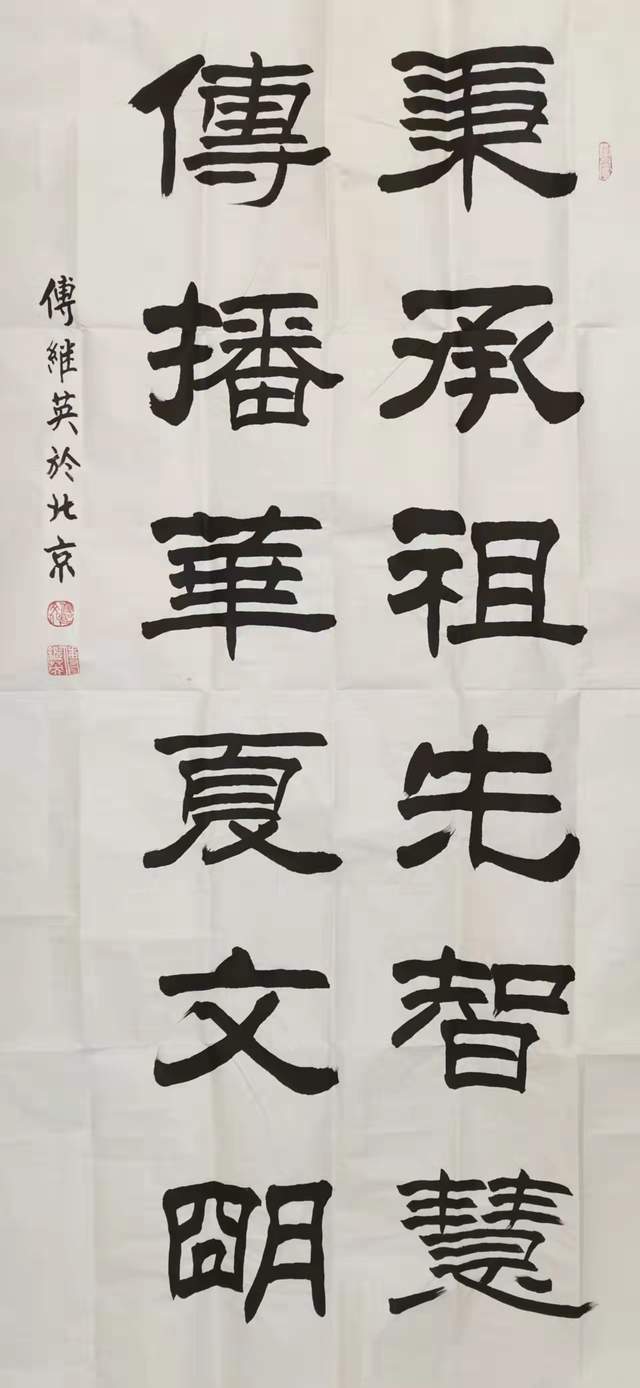 秉承祖先智慧
傳播華夏文明
傅維英於北京